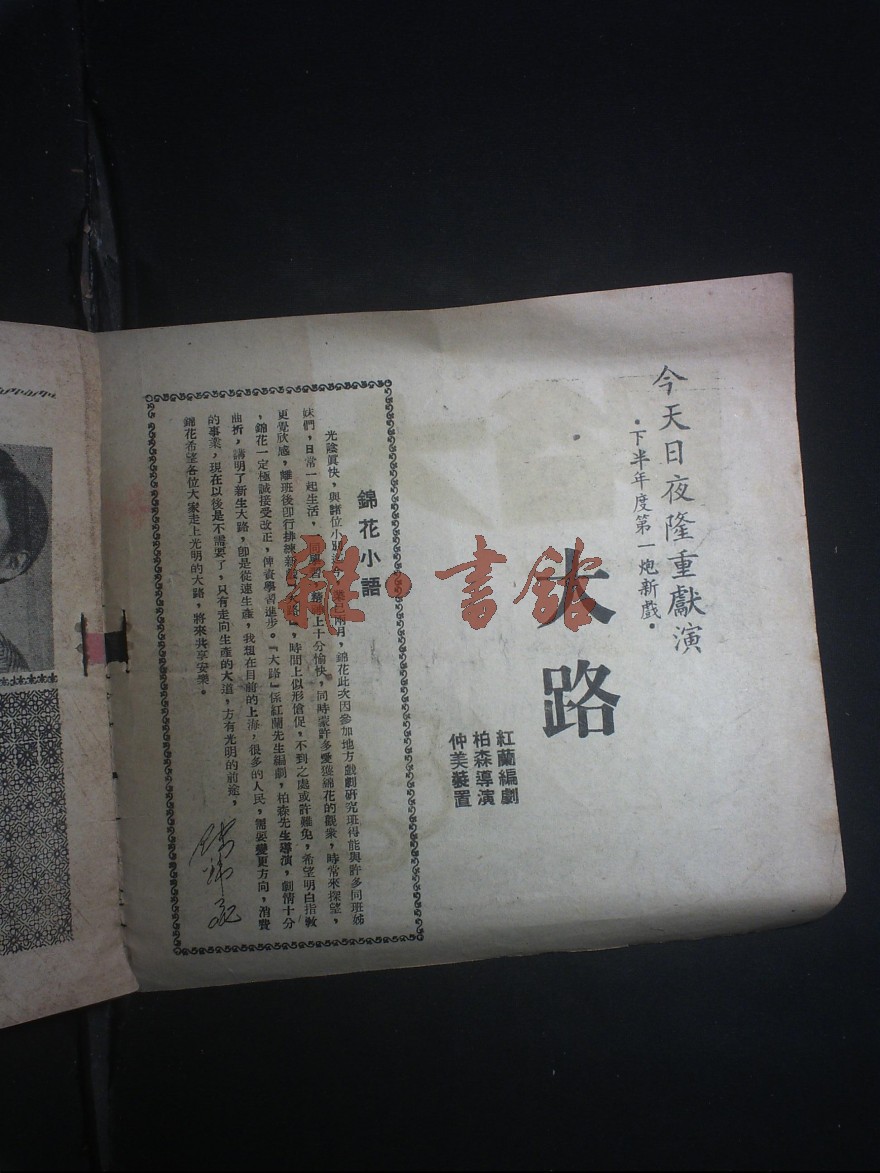 今天日夜隆重獻演
·下半年度第一炮新戲·
大路
紅蘭編劇
柏森導演
仲美裝置
錦花小語
光陰眞快，與諸位小別
兩月，錦花此次因參加地方戲劇硏究班得能與許多同班姊
妹們，日常一起生活，一同學習，精神上十分愉快，同時蒙許多愛護錦花的觀衆，時常來探望，
更覺欣感，離班後卽行排練新戲「大路」，時間上似形愴促，不到之處或許難免，希望明白指敎
，錦花一定極誠接受改正，俾資學習進步。『大路』係紅蘭先生編劇，柏森先生導演，劇情十分
曲折，講明了新生大路，卽是從速生產，我想在目前的上海，很多的人民，需要變更方向，消費
的事業，現在以後是不需要了，只有走向生產的大道，方有光明的前途，
錦花希望各位大家走上光明的大路，將來共享安樂。
雜·書館